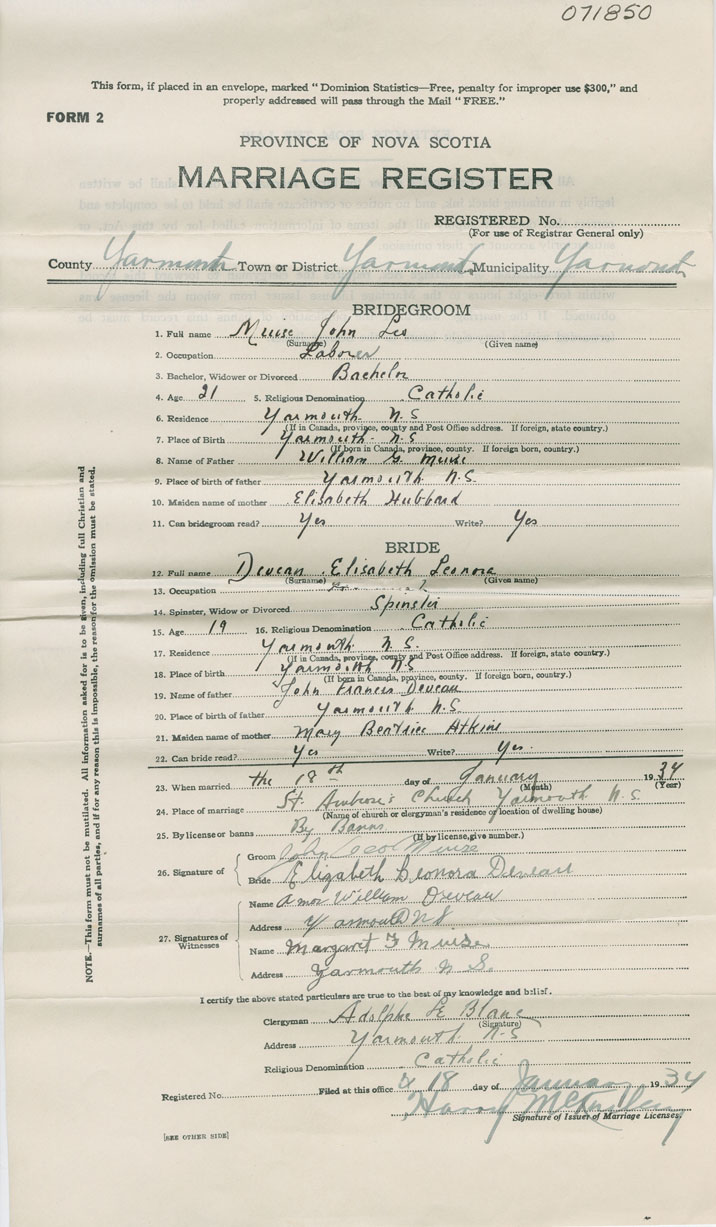 071850
This form, if placed in an envelope, marked "Dominion Statistics—Free, penalty for improper use $300," and
properly addressed will pass through the Mail "FREE."
FORM 2
PROVINCE OF NOVA SCOTIA
MARRIAGE REGISTER
REGISTERED No.
(For use of Registrar General only)
County Yarmouth Town or District Yarmouth Municipality Yarmouth
BRIDEGROOM
1. Full name Muise John Leo
(Surname) (Given name)
2. Occupation Laborer
3. Bachelor, Widower or Divorced Bachelor
4. Age 21 5. Religious Denomination Catholic
6. Residence Yarmouth N.S
(If in Canada, province, county and Post Office address. If foreign, state country.)
7. Place of Birth Yarmouth N.S
(If born in Canada, province, county. If foreign born, country.)
8. Name of Father William G. Muise
9. Place of birth of father Yarmouth N.S.
10. Maiden name of mother Elisabeth Hubbard
11. Can bridegroom read? Yes Write? Yes
BRIDE
12. Full name Deveau Elisabeth Leonora
(Surname) (Given name)
13. Occupation
14. Spinster, Widow or Divorced Spinster
15. Age 19 16. Religious Denomination Catholic
17. Residence Yarmouth N.S.
(If in Canada, province, county and Post Office address. If foreign, state country.)
18. Place of birth Yarmouth N.S
(If born in Canada, province, county. If foreign born, country.)
19. Name of father John Francis Deveau
20. Place of birth of father Yarmouth N.S.
21. Maiden name of mother Mary Beatrice Atkins
22. Can bride read? Yes Write? Yes.
23. When married the 18th day of January 1934
(Month) (Year)
24. Place of marriage St. Ambrose's Church Yarmouth N.S.
(Name of church or clergyman's residence or location of dwelling house)
25. By license or banns By Banns
(If by license, give number.)
26. Signature of Groom John Leo Muise
Bride Elizabeth Leonora Deveau
27. Signatures of Witnesses
Name William Deveau
Address Yarmouth NS
Name Margaret F Muise
Address Yarmouth N.S.
I certify the above stated particulars are true to the best of my knowledge and belief.
Clergyman Adolphe Le Blanc
(Signature)
Address Yarmouth N-S
Religious Denomination Catholic
Registered No. Filed at this office 18 day of January 1934
Harry
Signature of Issuer of Marriage Licenses.
[SEE OTHER SIDE]
NOTE.—This form must not be mutilated. All information asked for is to be given, including full Christian and
surnames of all parties, and if for any reason this is impossible, the reason for the omission must be stated.